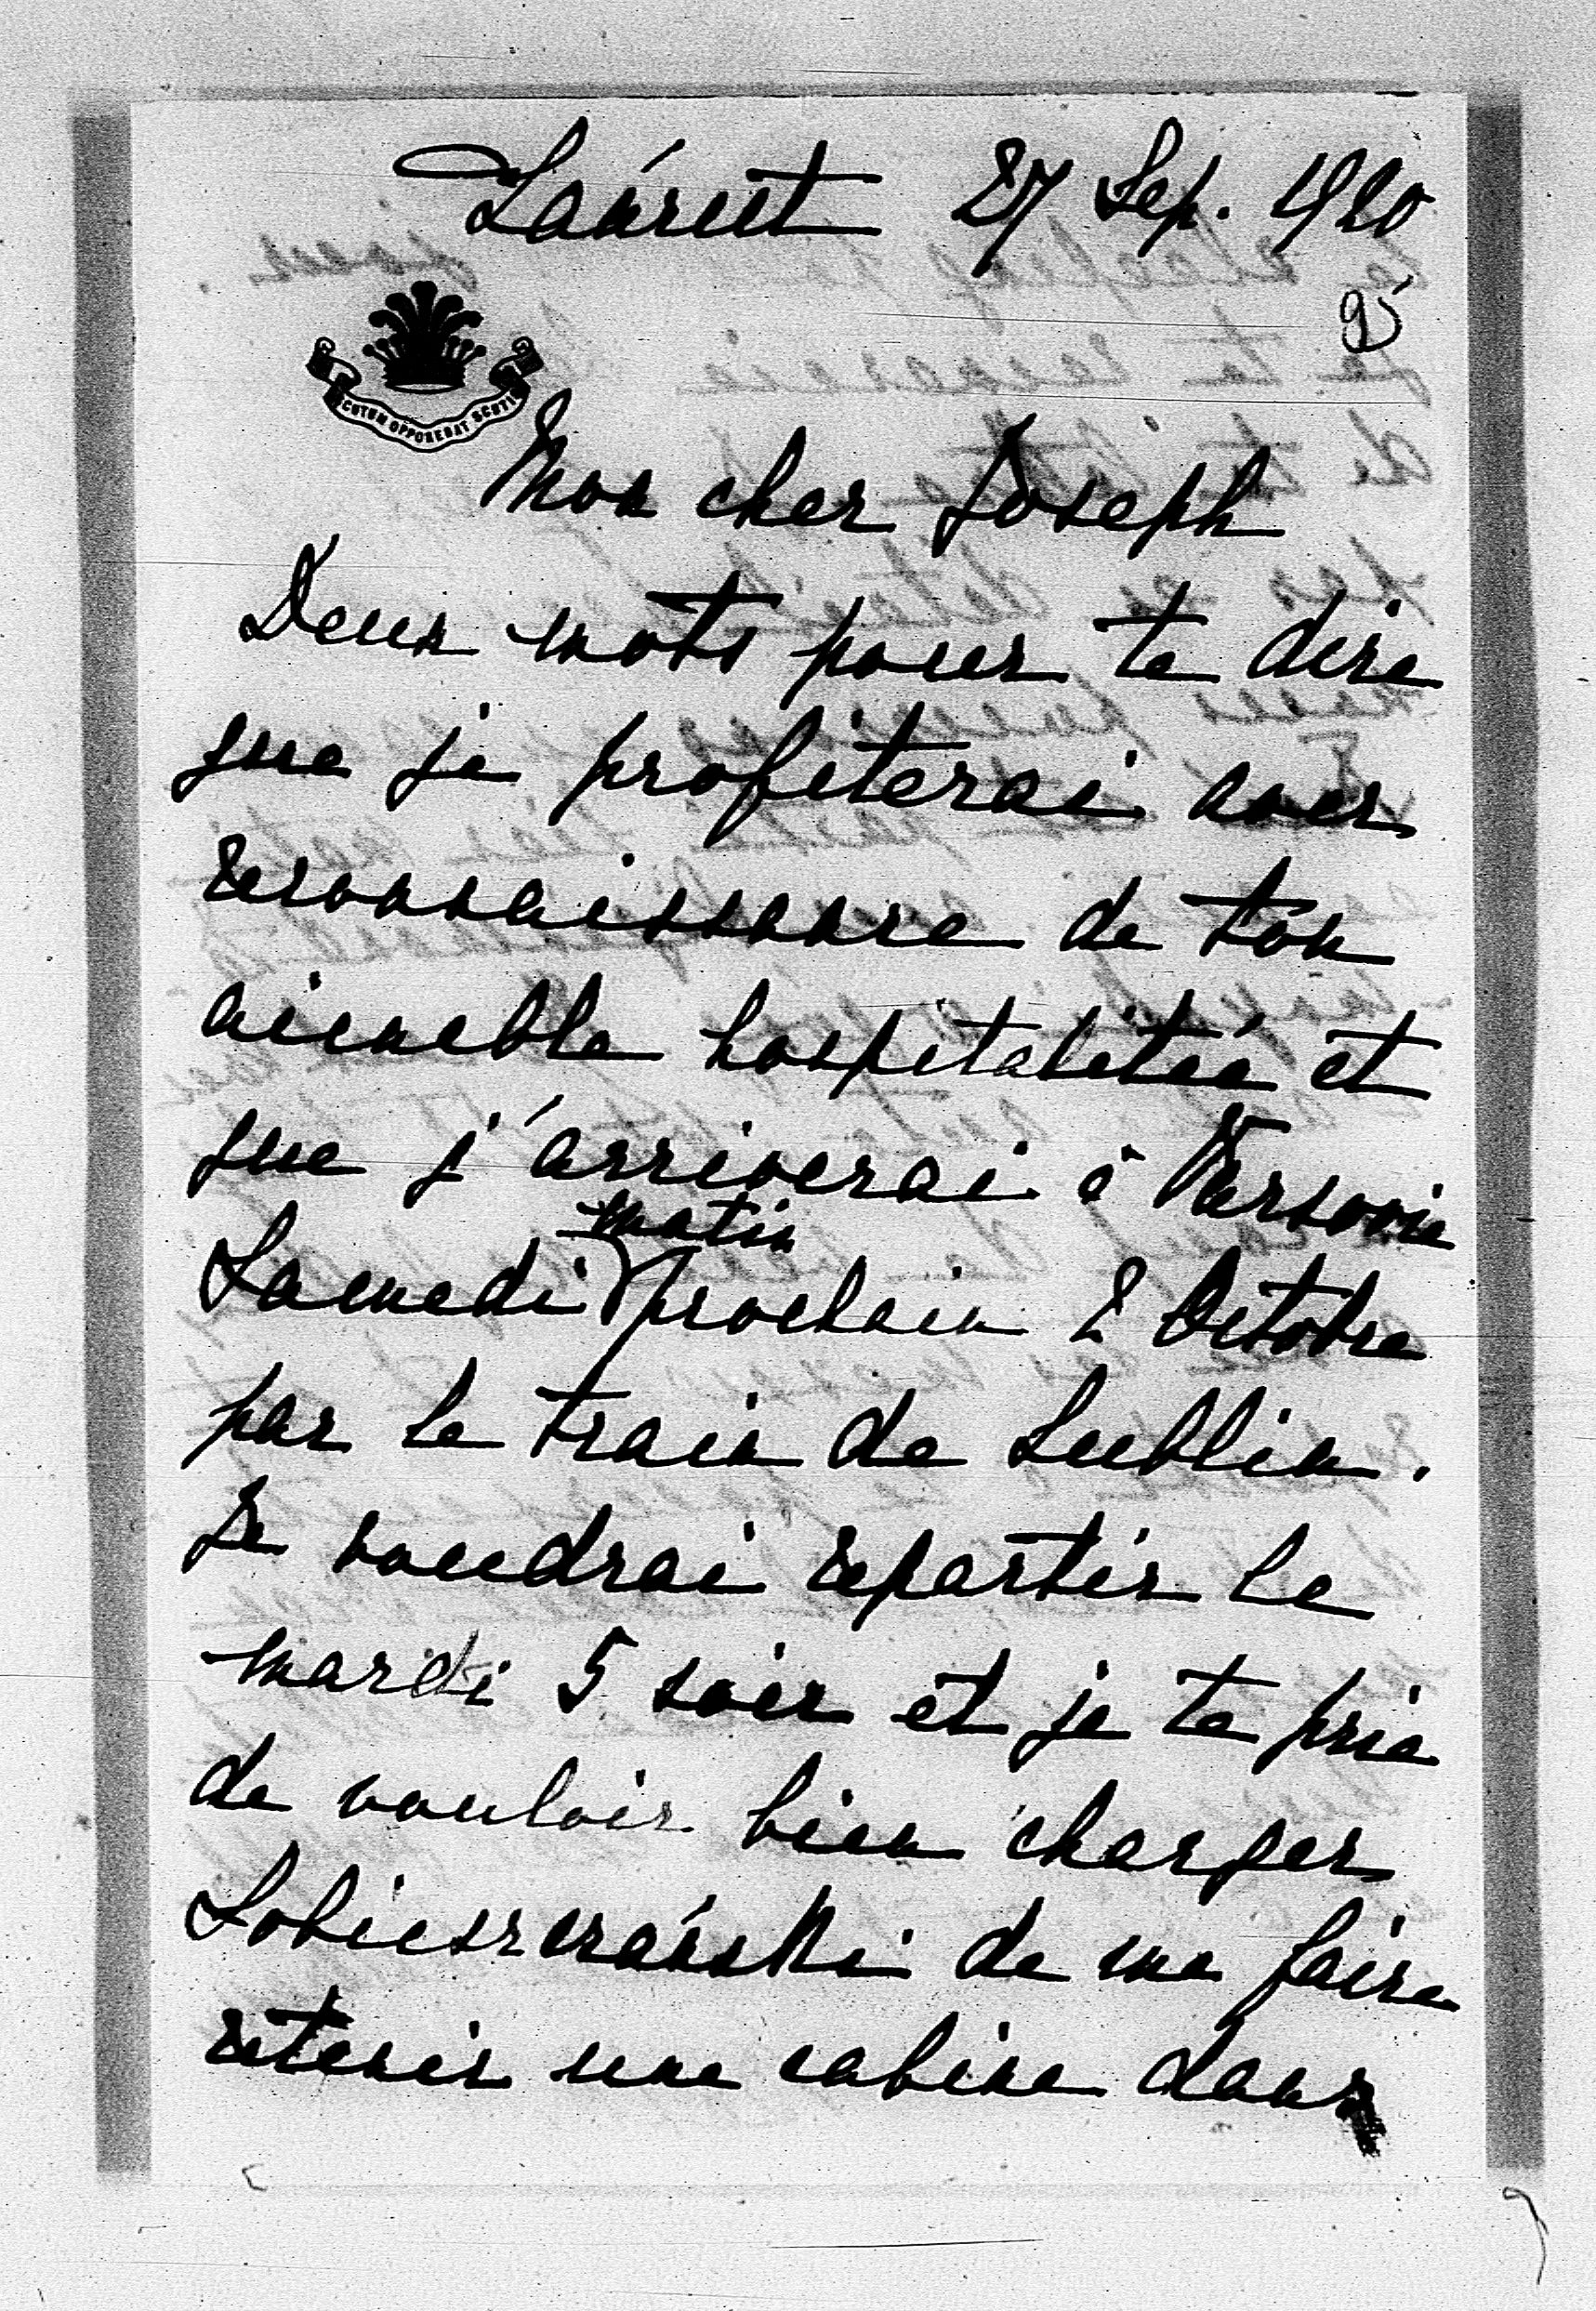 Łańcut 27 Sep. 1920
95
SCUTUM OPPONEBAT SCUTIS
Mon cher Joseph
Deux mots pour te dire
que je profiterai avec
reconnaissance de ton
aimable hospitalité et
que j'arriverai à Varsovie
matin
Samedi prochain 2 Octobre
par le train de Lublin.
Je voudrai repartir le
mardi 5 soir et je te prie
de vouloir bien charger
Sobieszczański de me faire
retenir une cabine dans